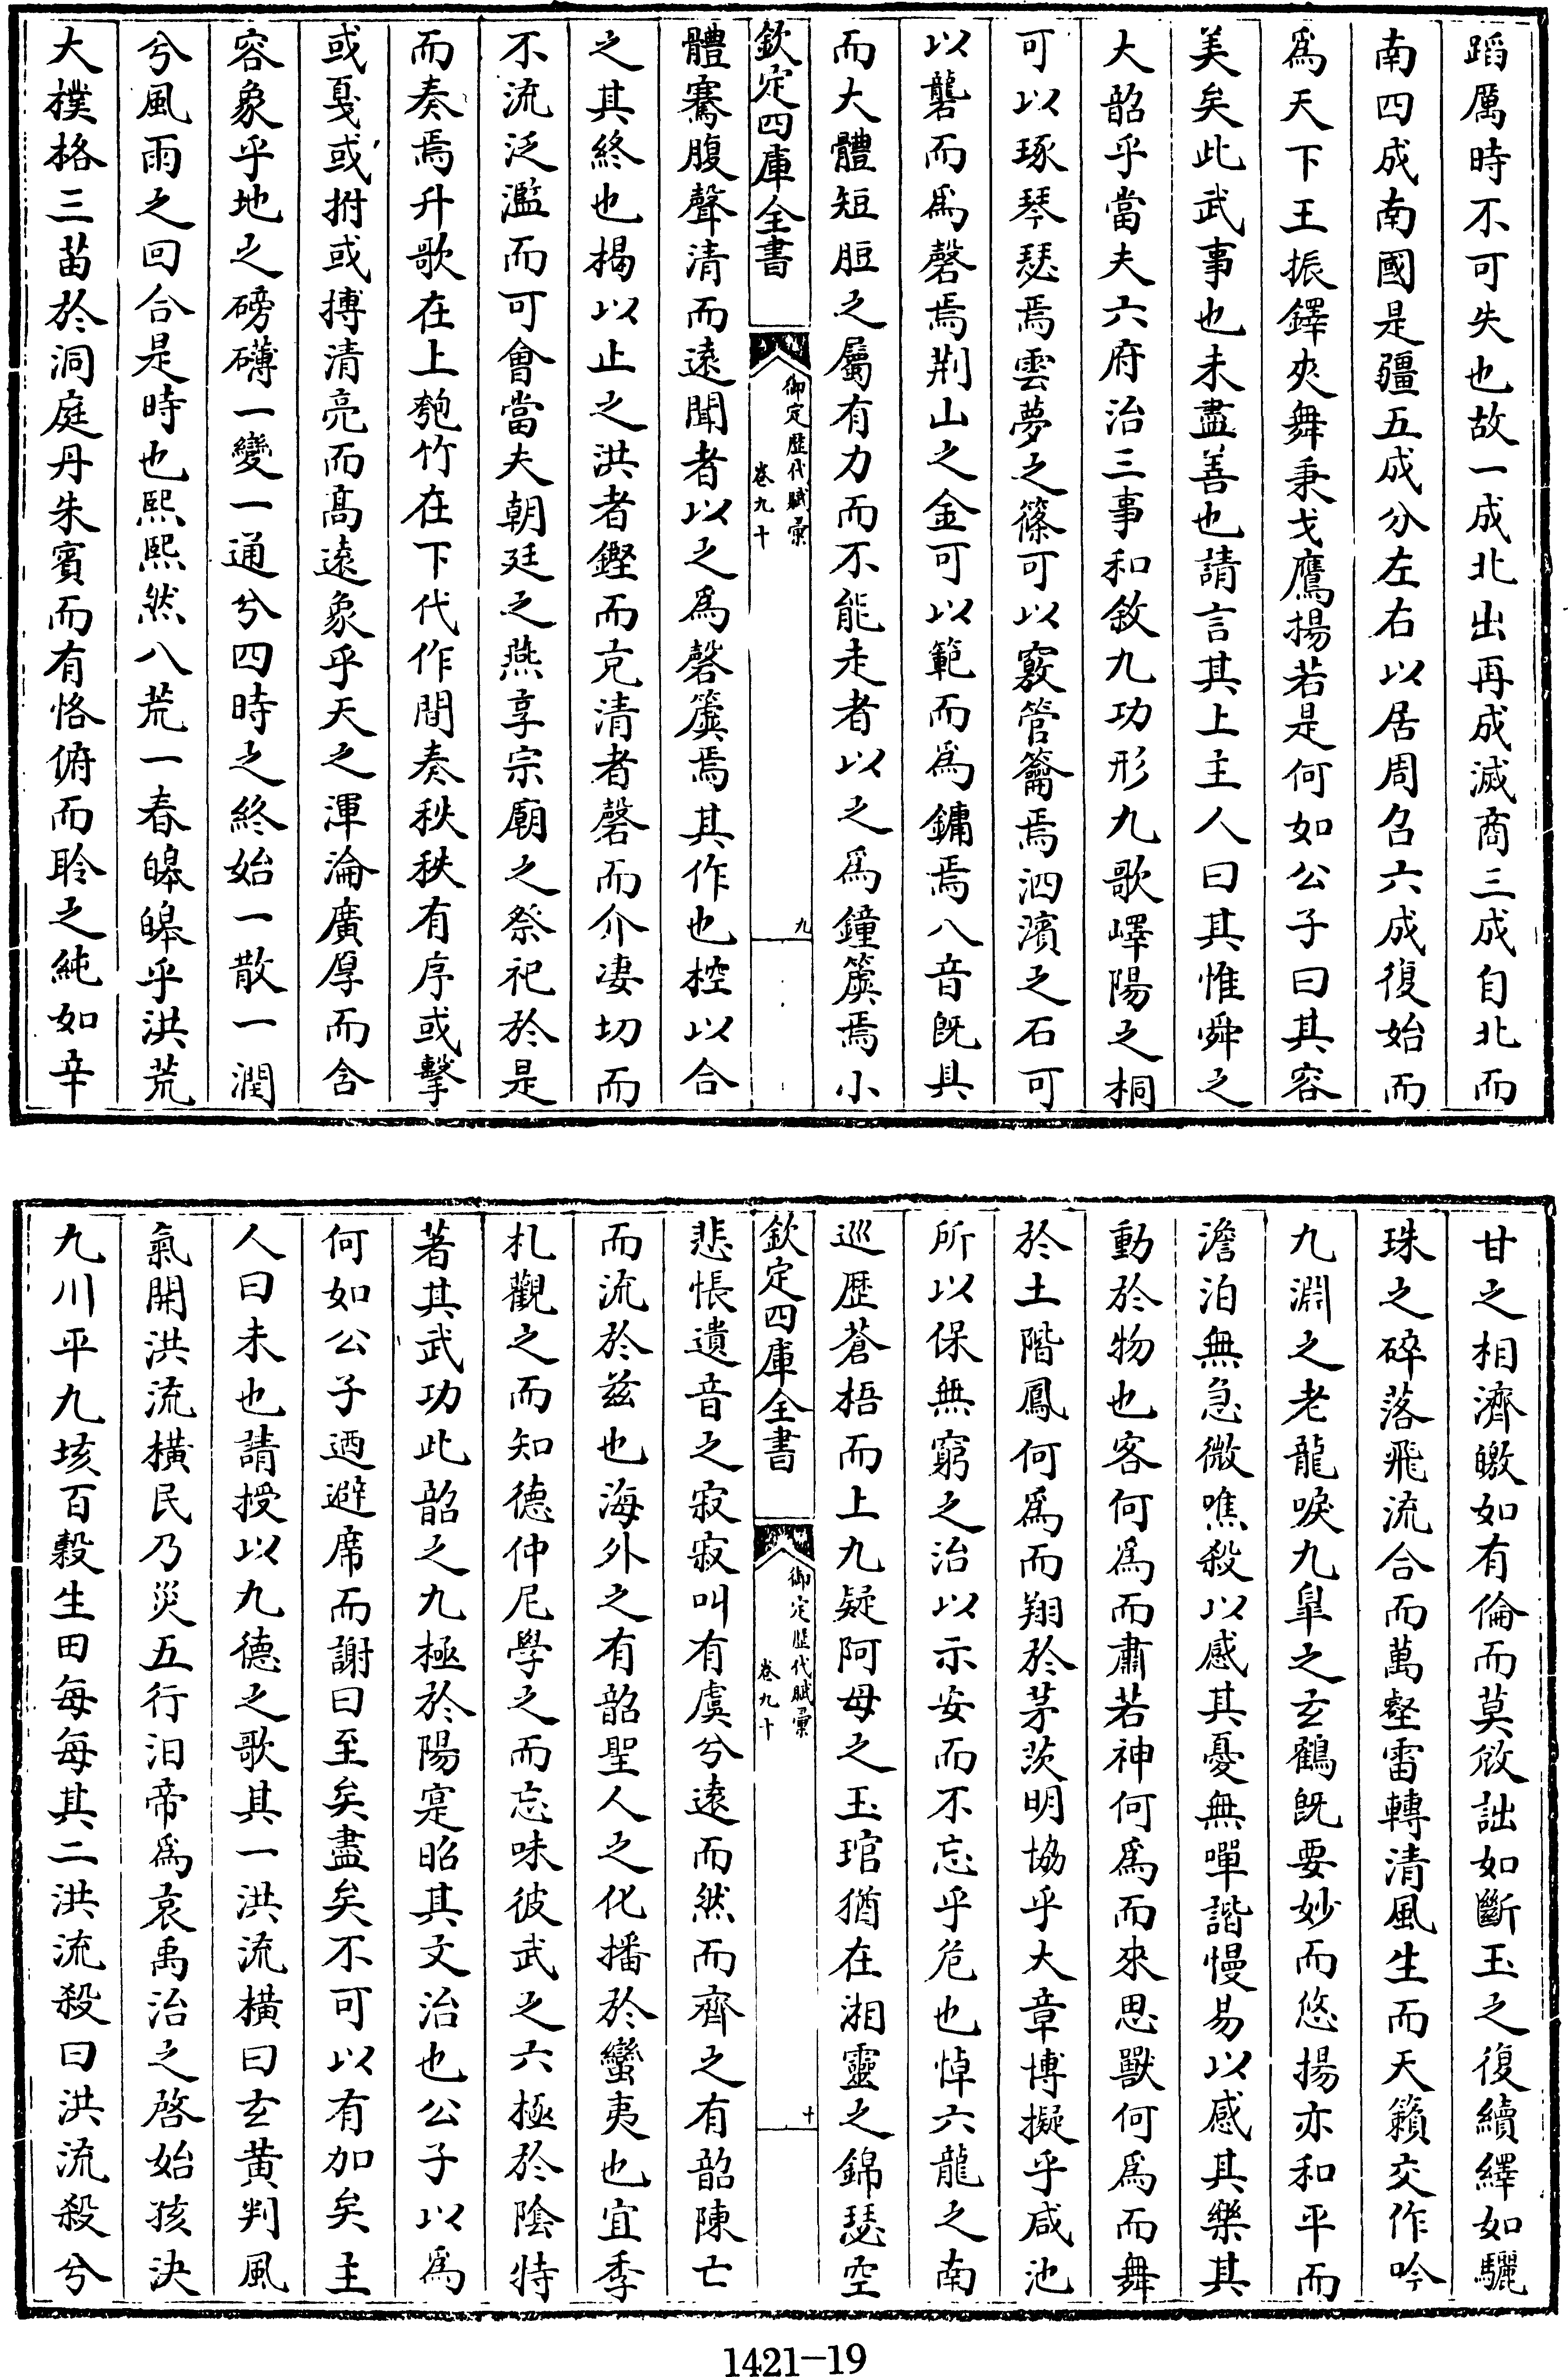 蹈厲時不可失也故一成北出再成滅商三成自北而
南四成南國是疆五成分左右以居周召六成復始而
爲天下王振鐸夾舞秉戈鷹揚若是何如公子曰其容
美矣此武事也未盡善也請言其上主人曰其惟舜之
大韶乎當夫六府治三事和敘九功形九歌嶧陽之桐
可以琢琴瑟焉雲夢之篠可以竅管籥焉泗濱之石可
以礱而爲磬焉荆山之金可以範而爲鏞焉八音旣具
而大體短脰之屬有力而不能走者以之爲鐘簴焉小
欽定四庫全書
御定歴代賦彙
卷九十
九
體騫腹聲清而遠聞者以之爲磬簴焉其作也椌以合
之其終也楬以止之洪者鏗而亮清者磬而介淒切而
不流泛濫而可會當夫朝廷之燕享宗廟之祭祀於是
而奏焉升歌在上匏竹在下代作間奏秩秩有序或擊
或戛或拊或搏清亮而髙遠象乎天之渾淪廣厚而含
容象乎地之磅礴一變一通兮四時之終始一散一潤
兮風雨之回合是時也熙熙然八荒一春皥皥乎洪荒
大樸格三苗於洞庭丹朱賓而有恪俯而聆之純如辛
甘之相濟皦如有倫而莫攽詘如斷玉之復續繹如驪
珠之碎落飛流合而萬壑雷轉清風生而天籟交作吟
九淵之老龍唳九臯之玄鶴旣要妙而悠揚亦和平而
澹泊無急微噍殺以感其憂無嘽諧慢易以感其樂其
動於物也客何爲而肅若神何爲而來思獸何爲而舞
於土階鳳何爲而翔於茅茨明協乎大章博擬乎咸池
所以保無窮之治以示安而不忘乎危也悼六龍之南
巡歴蒼梧而上九疑阿母之玉琯猶在湘靈之錦瑟空
欽定四庫全書
御定歴代賦彙
卷九十
十
悲悵遺音之寂寂叫有虞兮遠而然而齊之有韶陳亡
而流於兹也海外之有韶聖人之化播於蠻夷也宜季
札觀之而知德仲尼學之而忘味彼武之六極於隂特
著其武功此韶之九極於陽寔昭其文治也公子以爲
何如公子迺避席而謝曰至矣盡矣不可以有加矣主
人曰未也請授以九德之歌其一洪流橫曰玄黄判風
氣開洪流橫民乃災五行汨帝爲哀禹治之啓始孩決
九川平九垓百穀生田每每其二洪流殺曰洪流殺兮
1421-19